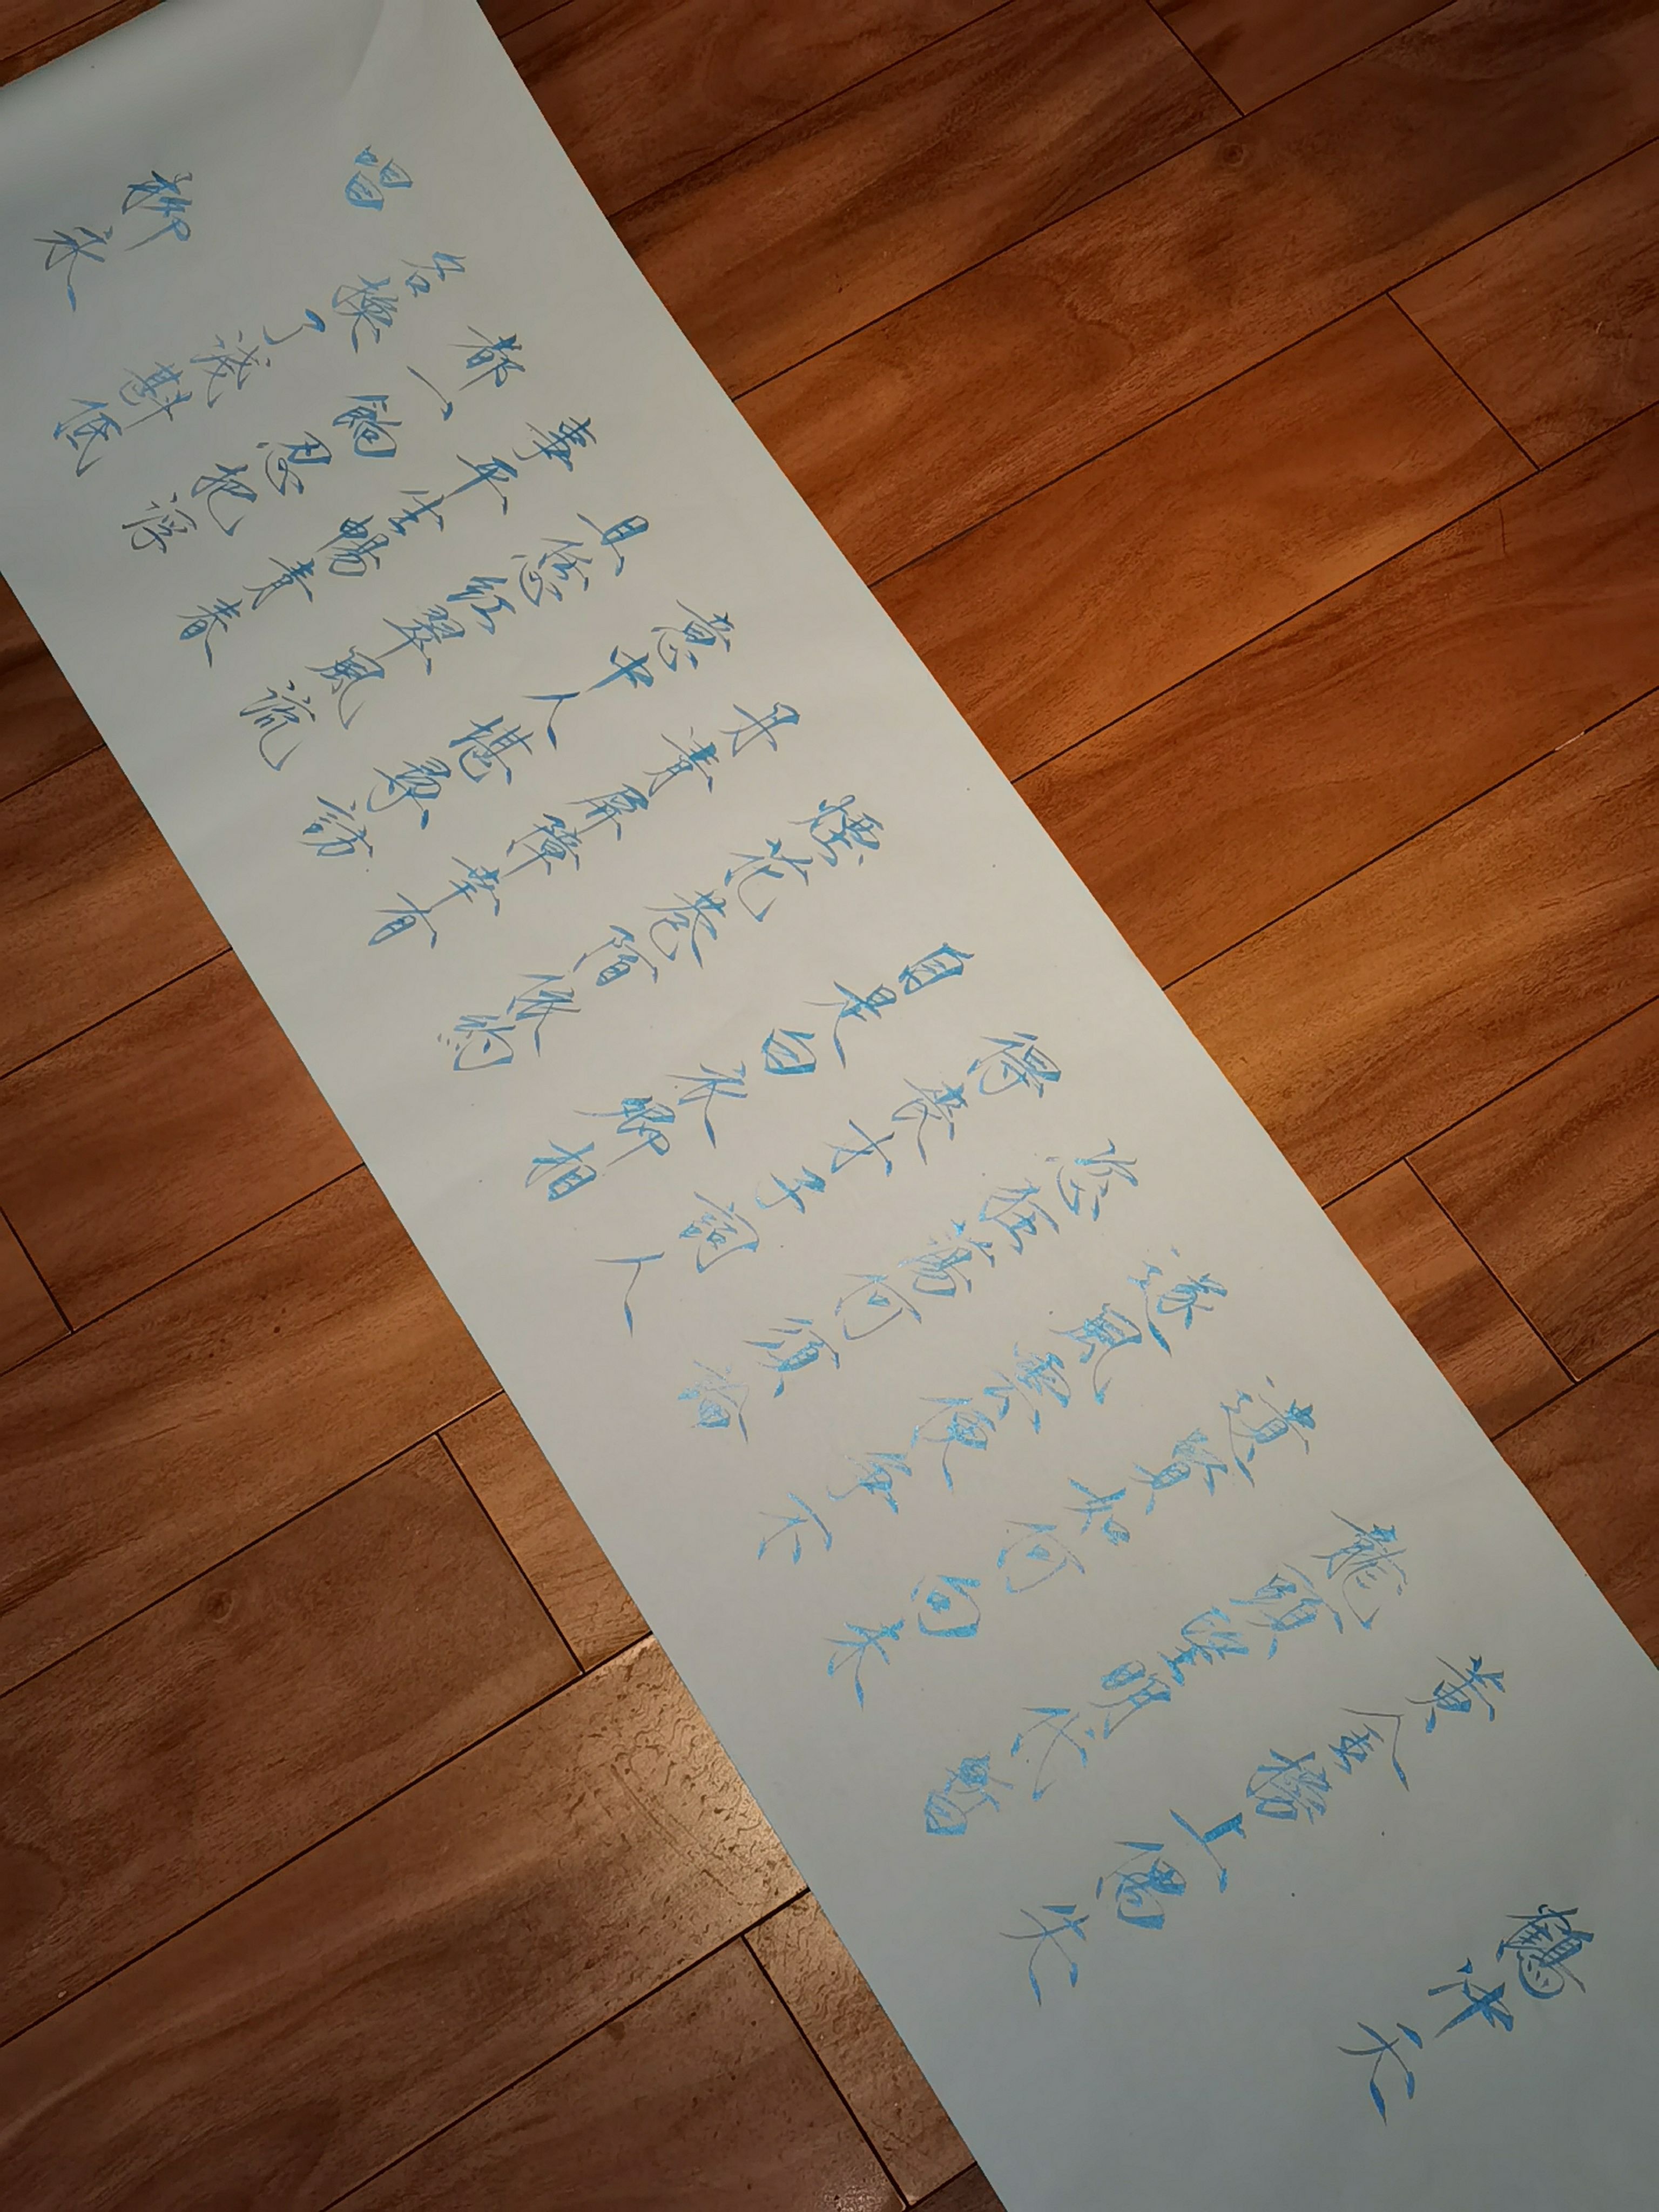 鶴沖天
黃金榜上偶失
龍頭望明代暫
遺賢如何向未
遂風雲便爭不
恣狂蕩何須論
得喪才子詞人
自是白衣卿相
煙花巷陌依約
丹青屏障幸有
意中人堪尋訪
且恁紅翠風流
事平生暢青春
都一餉忍把浮
名換了淺斟低
唱
柳永